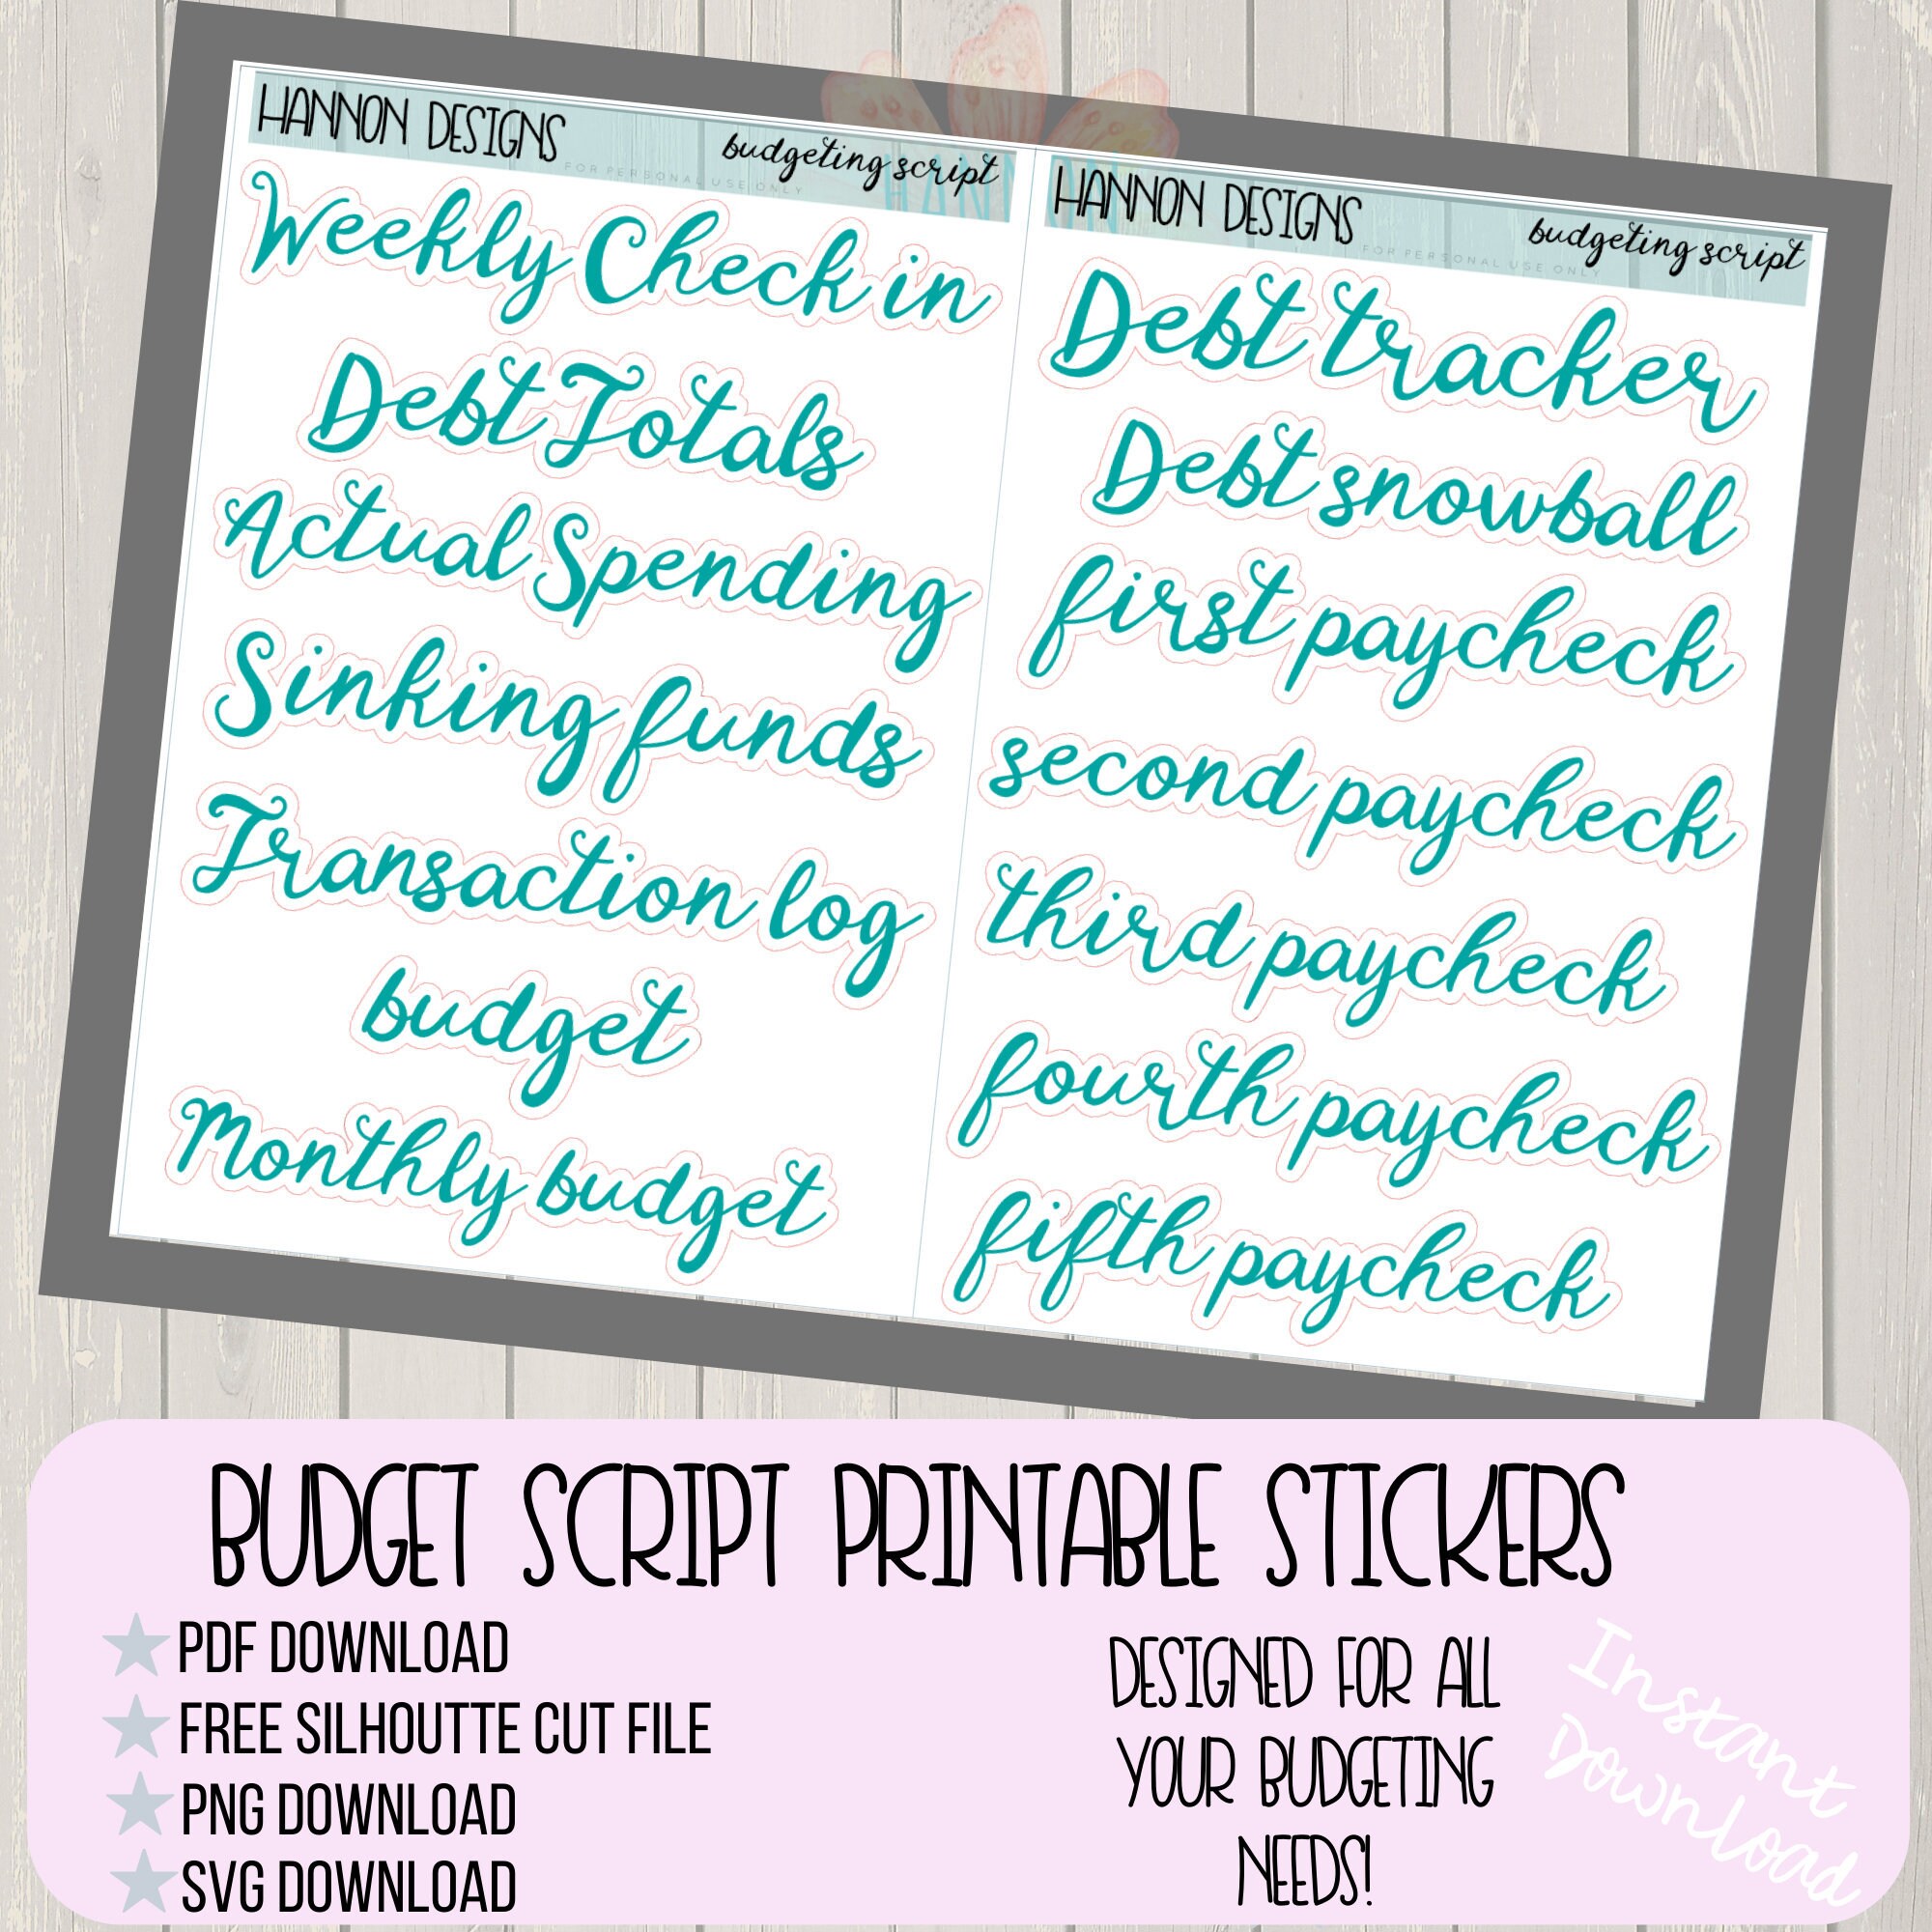 HANNON DESIGNS
budgeting script
FOR PERSONAL USE ONLY
Weekly Check in
Debt Totals
Actual Spending
Sinking funds
Transaction log
budget
Monthly budget
HANNON DESIGNS
budgeting script
FOR PERSONAL USE ONLY
Debt tracker
Debt snowball
first paycheck
second paycheck
third paycheck
fourth paycheck
fifth paycheck
BUDGET SCRIPT PRINTABLE STICKERS
PDF DOWNLOAD
FREE SILHOUTTE CUT FILE
PNG DOWNLOAD
SVG DOWNLOAD
DESIGNED FOR ALL
YOUR BUDGETING
NEEDS!
Instant
Download